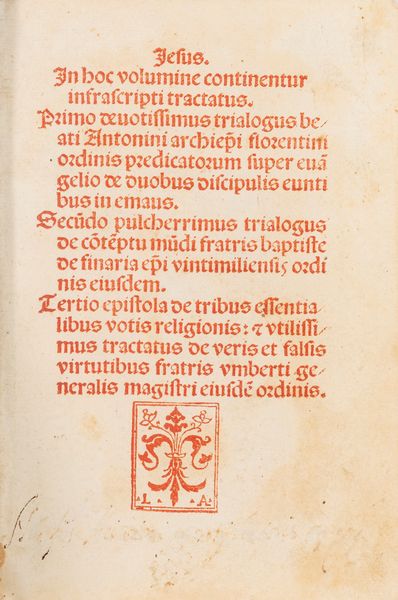 Jesus.
In hoc volumine continentur
infrascripti tractatus.
Primo deuotissimus trialogus be⸗
ati Antonini archiep̃i florentini
ordinis predicatorum super euã
gelio de duobus discipulis eunti
bus in emaus.
Secũdo pulcherrimus trialogus
de cõtẽptu mũdi fratris baptiste
de finaria ep̃i vintimiliensis ordi
nis eiusdem.
Tertio epistola de tribus essentia⸗
libus votis religionis: ⁊ vtilissi⸗
mus tractatus de veris et falsis
virtutibus fratris vmberti ge⸗
neralis magistri eiusdẽ ordinis.
L A